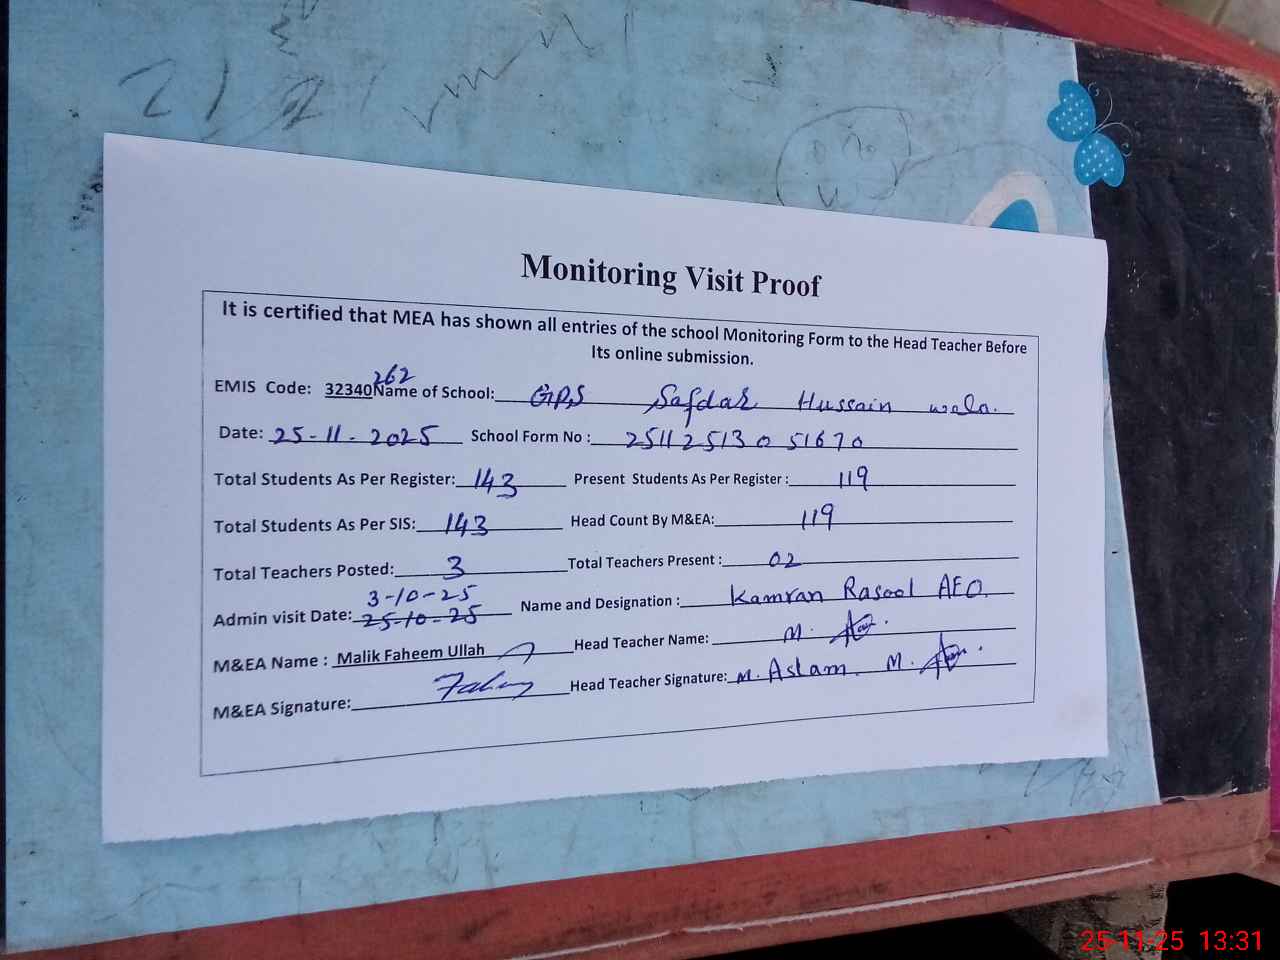 Monitoring Visit Proof
It is certified that MEA has shown all entries of the school Monitoring Form to the Head Teacher Before
Its online submission.
EMIS Code: 32340262 Name of School: GPS Safdar Hussain wala.
Date: 25-11-2025 School Form No : 25112513051670
Total Students As Per Register: 143 Present Students As Per Register : 119
Total Students As Per SIS: 143 Head Count By M&EA: 119
Total Teachers Posted: 3 Total Teachers Present : 02
3-10-25
Admin visit Date: 25-10-25 Name and Designation : Kamran Rasool AEO.
M&EA Name : Malik Faheem Ullah Head Teacher Name: M.
M&EA Signature: Head Teacher Signature: M. Aslam. M.
25-11-25 13:31